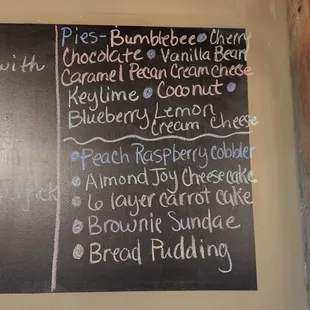 Pies- Bumblebee • Cherry
Chocolate • Vanilla Bean
Caramel Pecan Cream cheese
Keylime • Coconut •
Blueberry Lemon
Cream cheese
• Peach Raspberry cobbler
• Almond Joy Cheesecake
• 6 layer carrot cake
• Brownie Sundae
• Bread Pudding
with